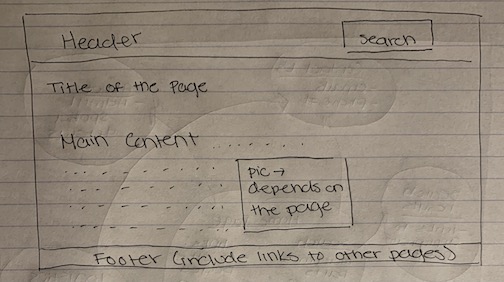 Header
Search
Title of the Page
Main Content
pic →
depends on
the page
Footer (include links to other pages)